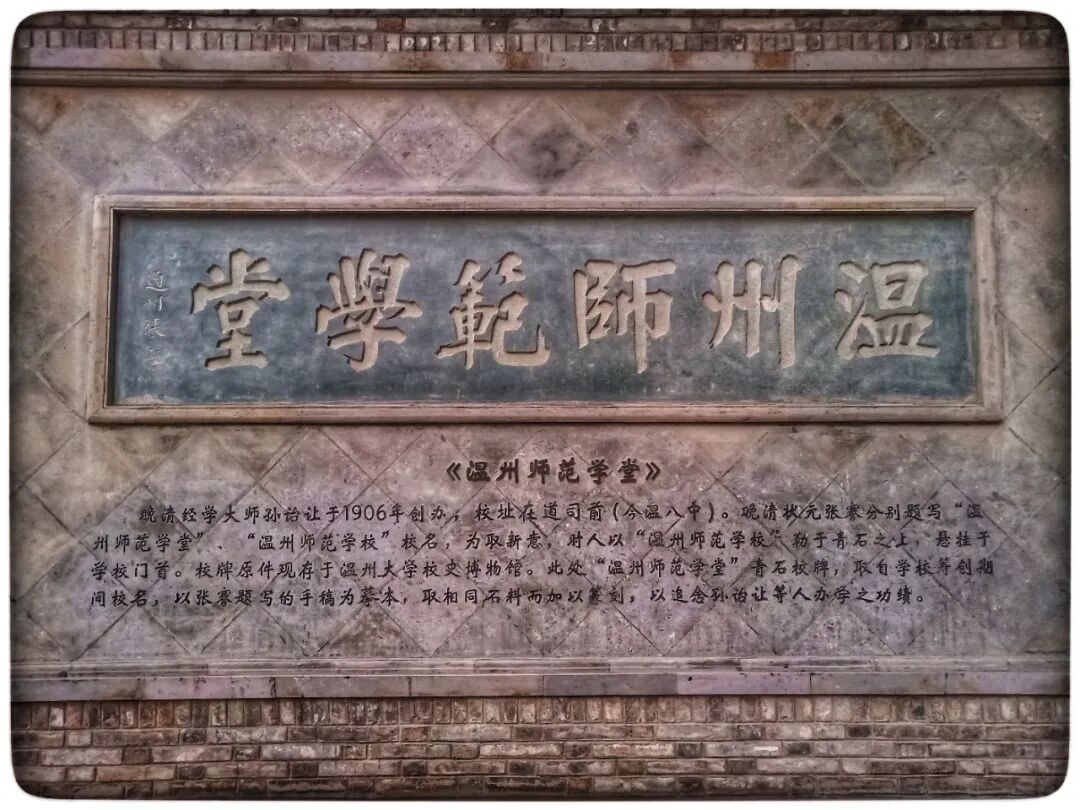 温州師範學堂
通州張謇
《温州师范学堂》
晚清经学大师孙诒让于1906年创办，校址在道司前（今温八中）。晚清状元张謇分别题写“温
州师范学堂”、“温州师范学校”校名，为取新意，时人以“温州师范学校”勒于青石之上，悬挂于
学校门首。校牌原件现存于温州大学校史博物馆。此处“温州师范学堂”青石校牌，取自学校筹创期
间校名，以张謇题写的手稿为摹本，取相同石料而加以篆刻，以追念孙诒让等人办学之功绩。